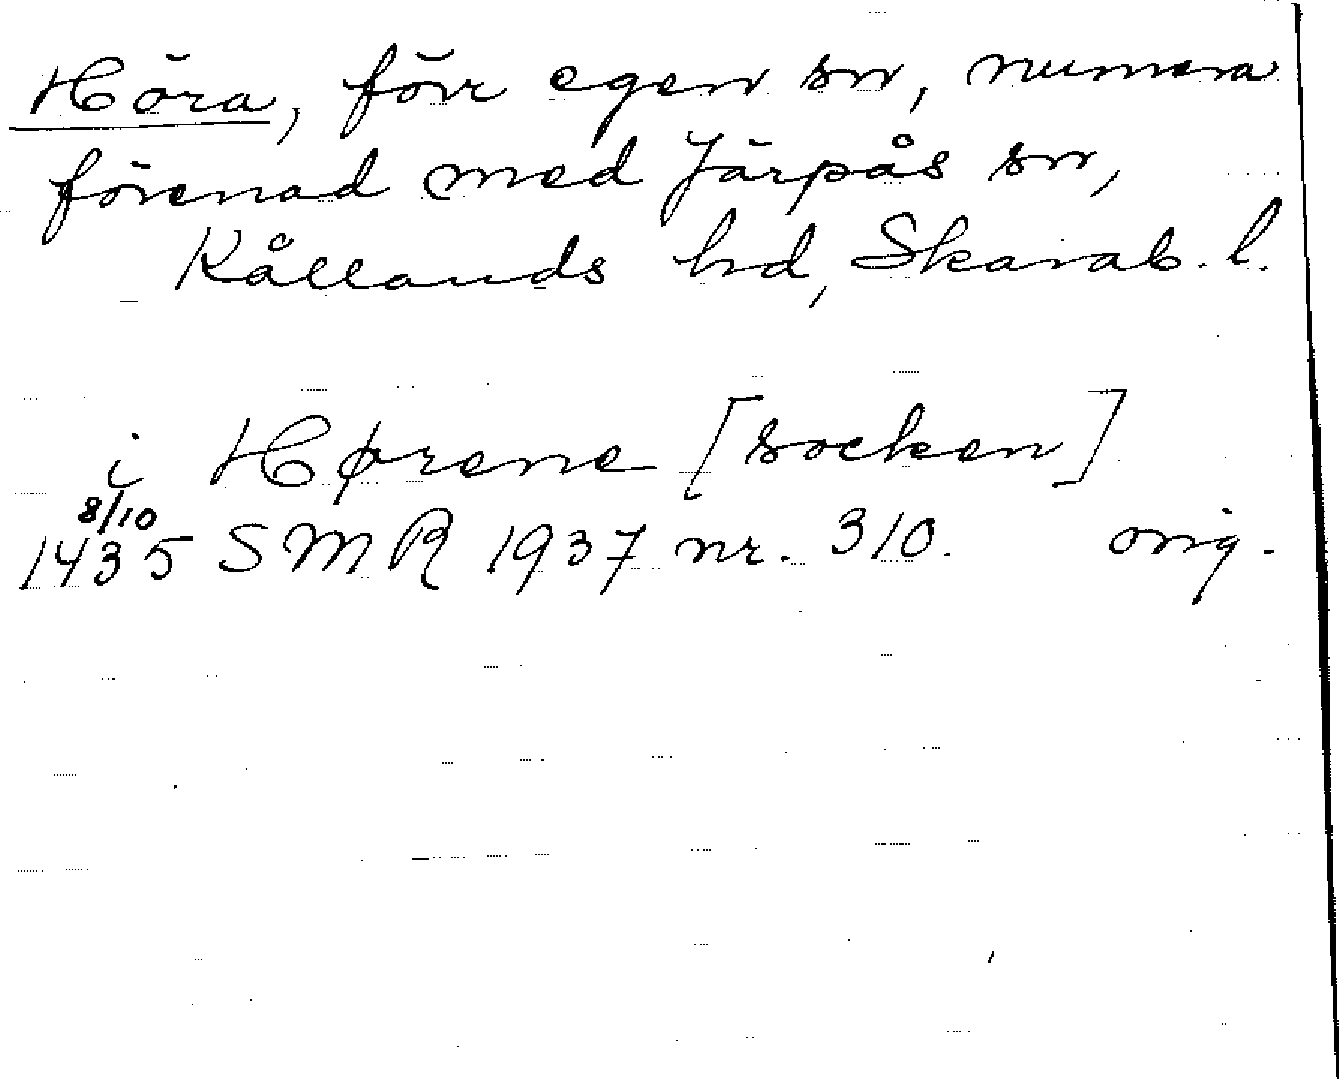 Höra, förr egen sn, numera
förenad med Järpås sn,
Kållands hd, Skarab. l.
i Hørene [socken]
8/10
1435 SMR 1937 nr. 310. orig.